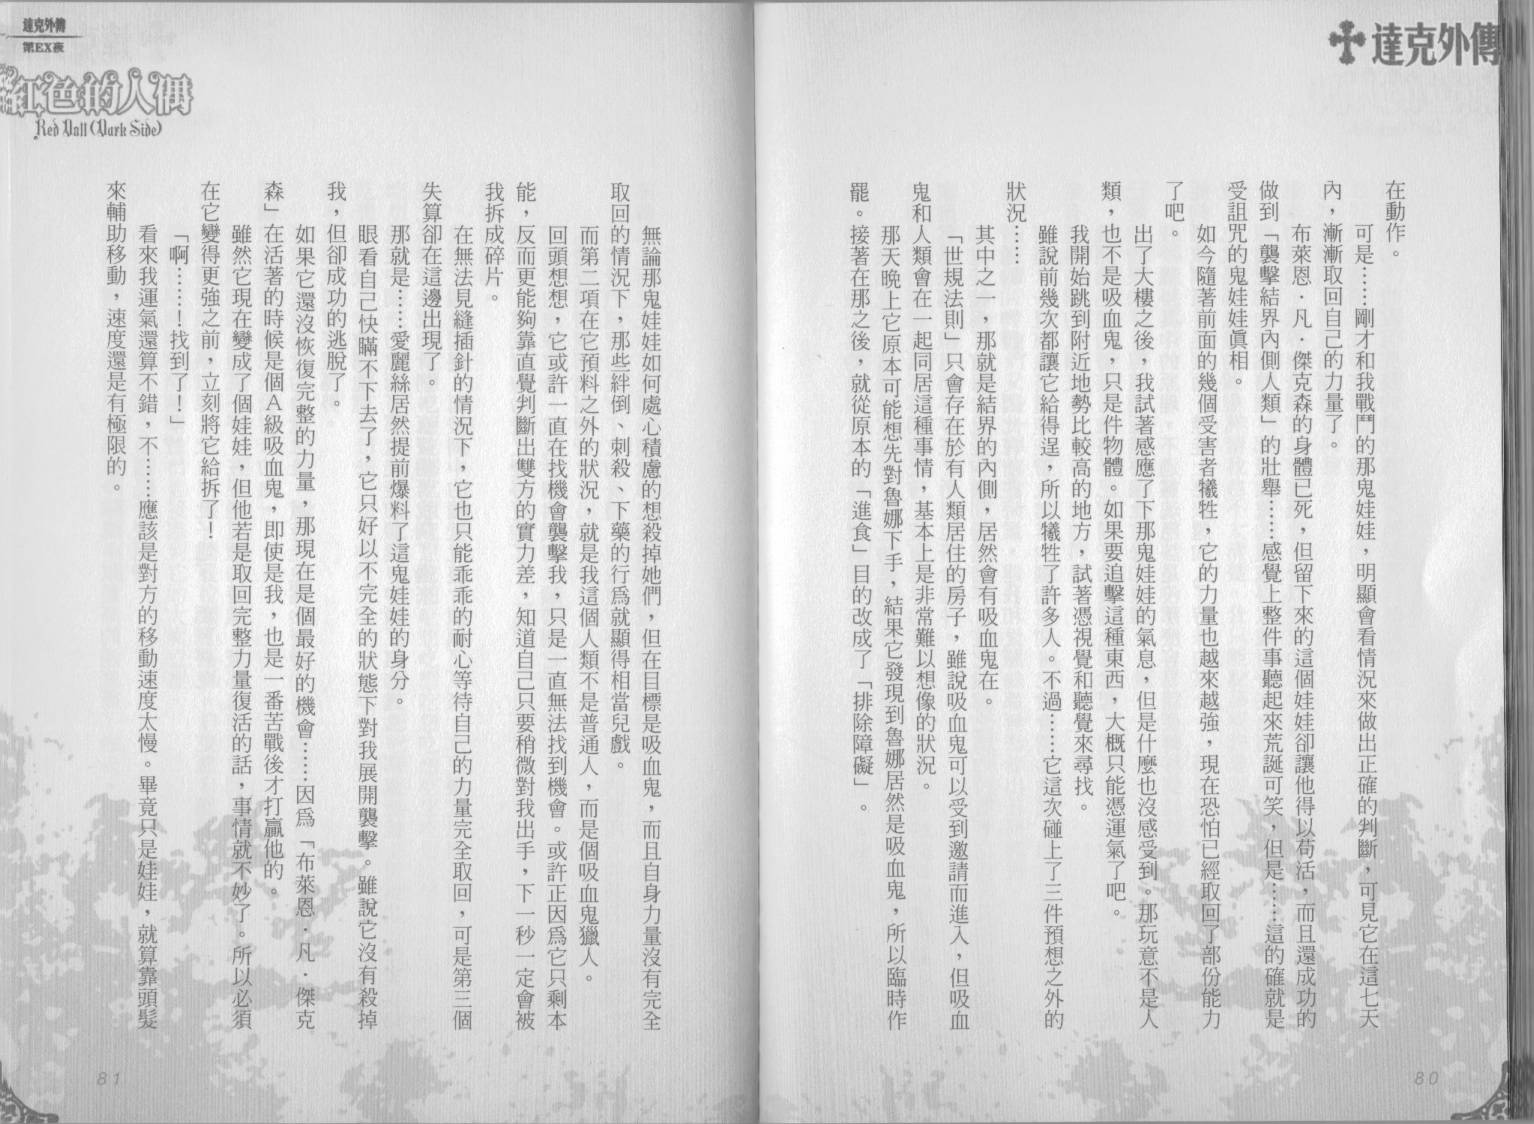 達克外傳
在動作。
可是……剛才和我戰鬥的那鬼娃娃，明顯會看情況來做出正確的判斷，可見它在這七天
內，漸漸取回自己的力量了。
布萊恩．凡．傑克森的身體已死，但留下來的這個娃娃卻讓他得以苟活，而且還成功的
做到「襲擊結界內側人類」的壯舉……感覺上整件事聽起來荒誕可笑，但是……這的確就是
受詛咒的鬼娃娃真相。
如今隨著前面的幾個受害者犧牲，它的力量也越來越強，現在恐怕已經取回了部份能力
了吧。
出了大樓之後，我試著感應了下那鬼娃娃的氣息，但是什麼也沒感受到。那玩意不是人
類，也不是吸血鬼，只是件物體。如果要追擊這種東西，大概只能憑運氣了吧。
我開始跳到附近地勢比較高的地方，試著憑視覺和聽覺來尋找。
雖說前幾次都讓它給得逞，所以犧牲了許多人。不過……它這次碰上了三件預想之外的
狀況……
其中之一，那就是結界的內側，居然會有吸血鬼在。
「世規法則」只會存在於有人類居住的房子，雖說吸血鬼可以受到邀請而進入，但吸血
鬼和人類會在一起同居這種事情，基本上是非常難以想像的狀況。
那天晚上它原本可能想先對魯娜下手，結果它發現到魯娜居然是吸血鬼，所以臨時作
罷。接著在那之後，就從原本的「進食」目的改成了「排除障礙」。
80
達克外傳
第EX夜
紅色的人偶
Red Doll (Dark Side)
無論那鬼娃娃如何處心積慮的想殺掉她們，但在目標是吸血鬼，而且自身力量沒有完全
取回的情況下，那些絆倒、刺殺、下藥的行為就顯得相當兒戲。
而第二項在它預料之外的狀況，就是我這個人類不是普通人，而是個吸血鬼獵人。
回頭想想，它或許一直在找機會襲擊我，只是一直無法找到機會。或許正因為它只剩本
能，反而更能夠靠直覺判斷出雙方的實力差，知道自己只要稍微對我出手，下一秒一定會被
我拆成碎片。
在無法見縫插針的情況下，它也只能乖乖的耐心等待自己的力量完全取回，可是第三個
失算卻在這邊出現了。
那就是……愛麗絲居然提前爆料了這鬼娃娃的身分。
眼看自己快瞞不下去了，它只好以不完全的狀態下對我展開襲擊。雖說它沒有殺掉
我，但卻成功的逃脫了。
如果它還沒恢復完整的力量，那現在是個最好的機會……因為「布萊恩．凡．傑克
森」在活著的時候是個Ａ級吸血鬼，即使是我，也是一番苦戰後才打贏他的。
雖然它現在變成了個娃娃，但他若是取回完整力量復活的話，事情就不妙了。所以必須
在它變得更強之前，立刻將它給拆了！
「啊……！找到了！」
看來我運氣還算不錯，不……應該是對方的移動速度太慢。畢竟只是娃娃，就算靠頭髮
來輔助移動，速度還是有極限的。
81